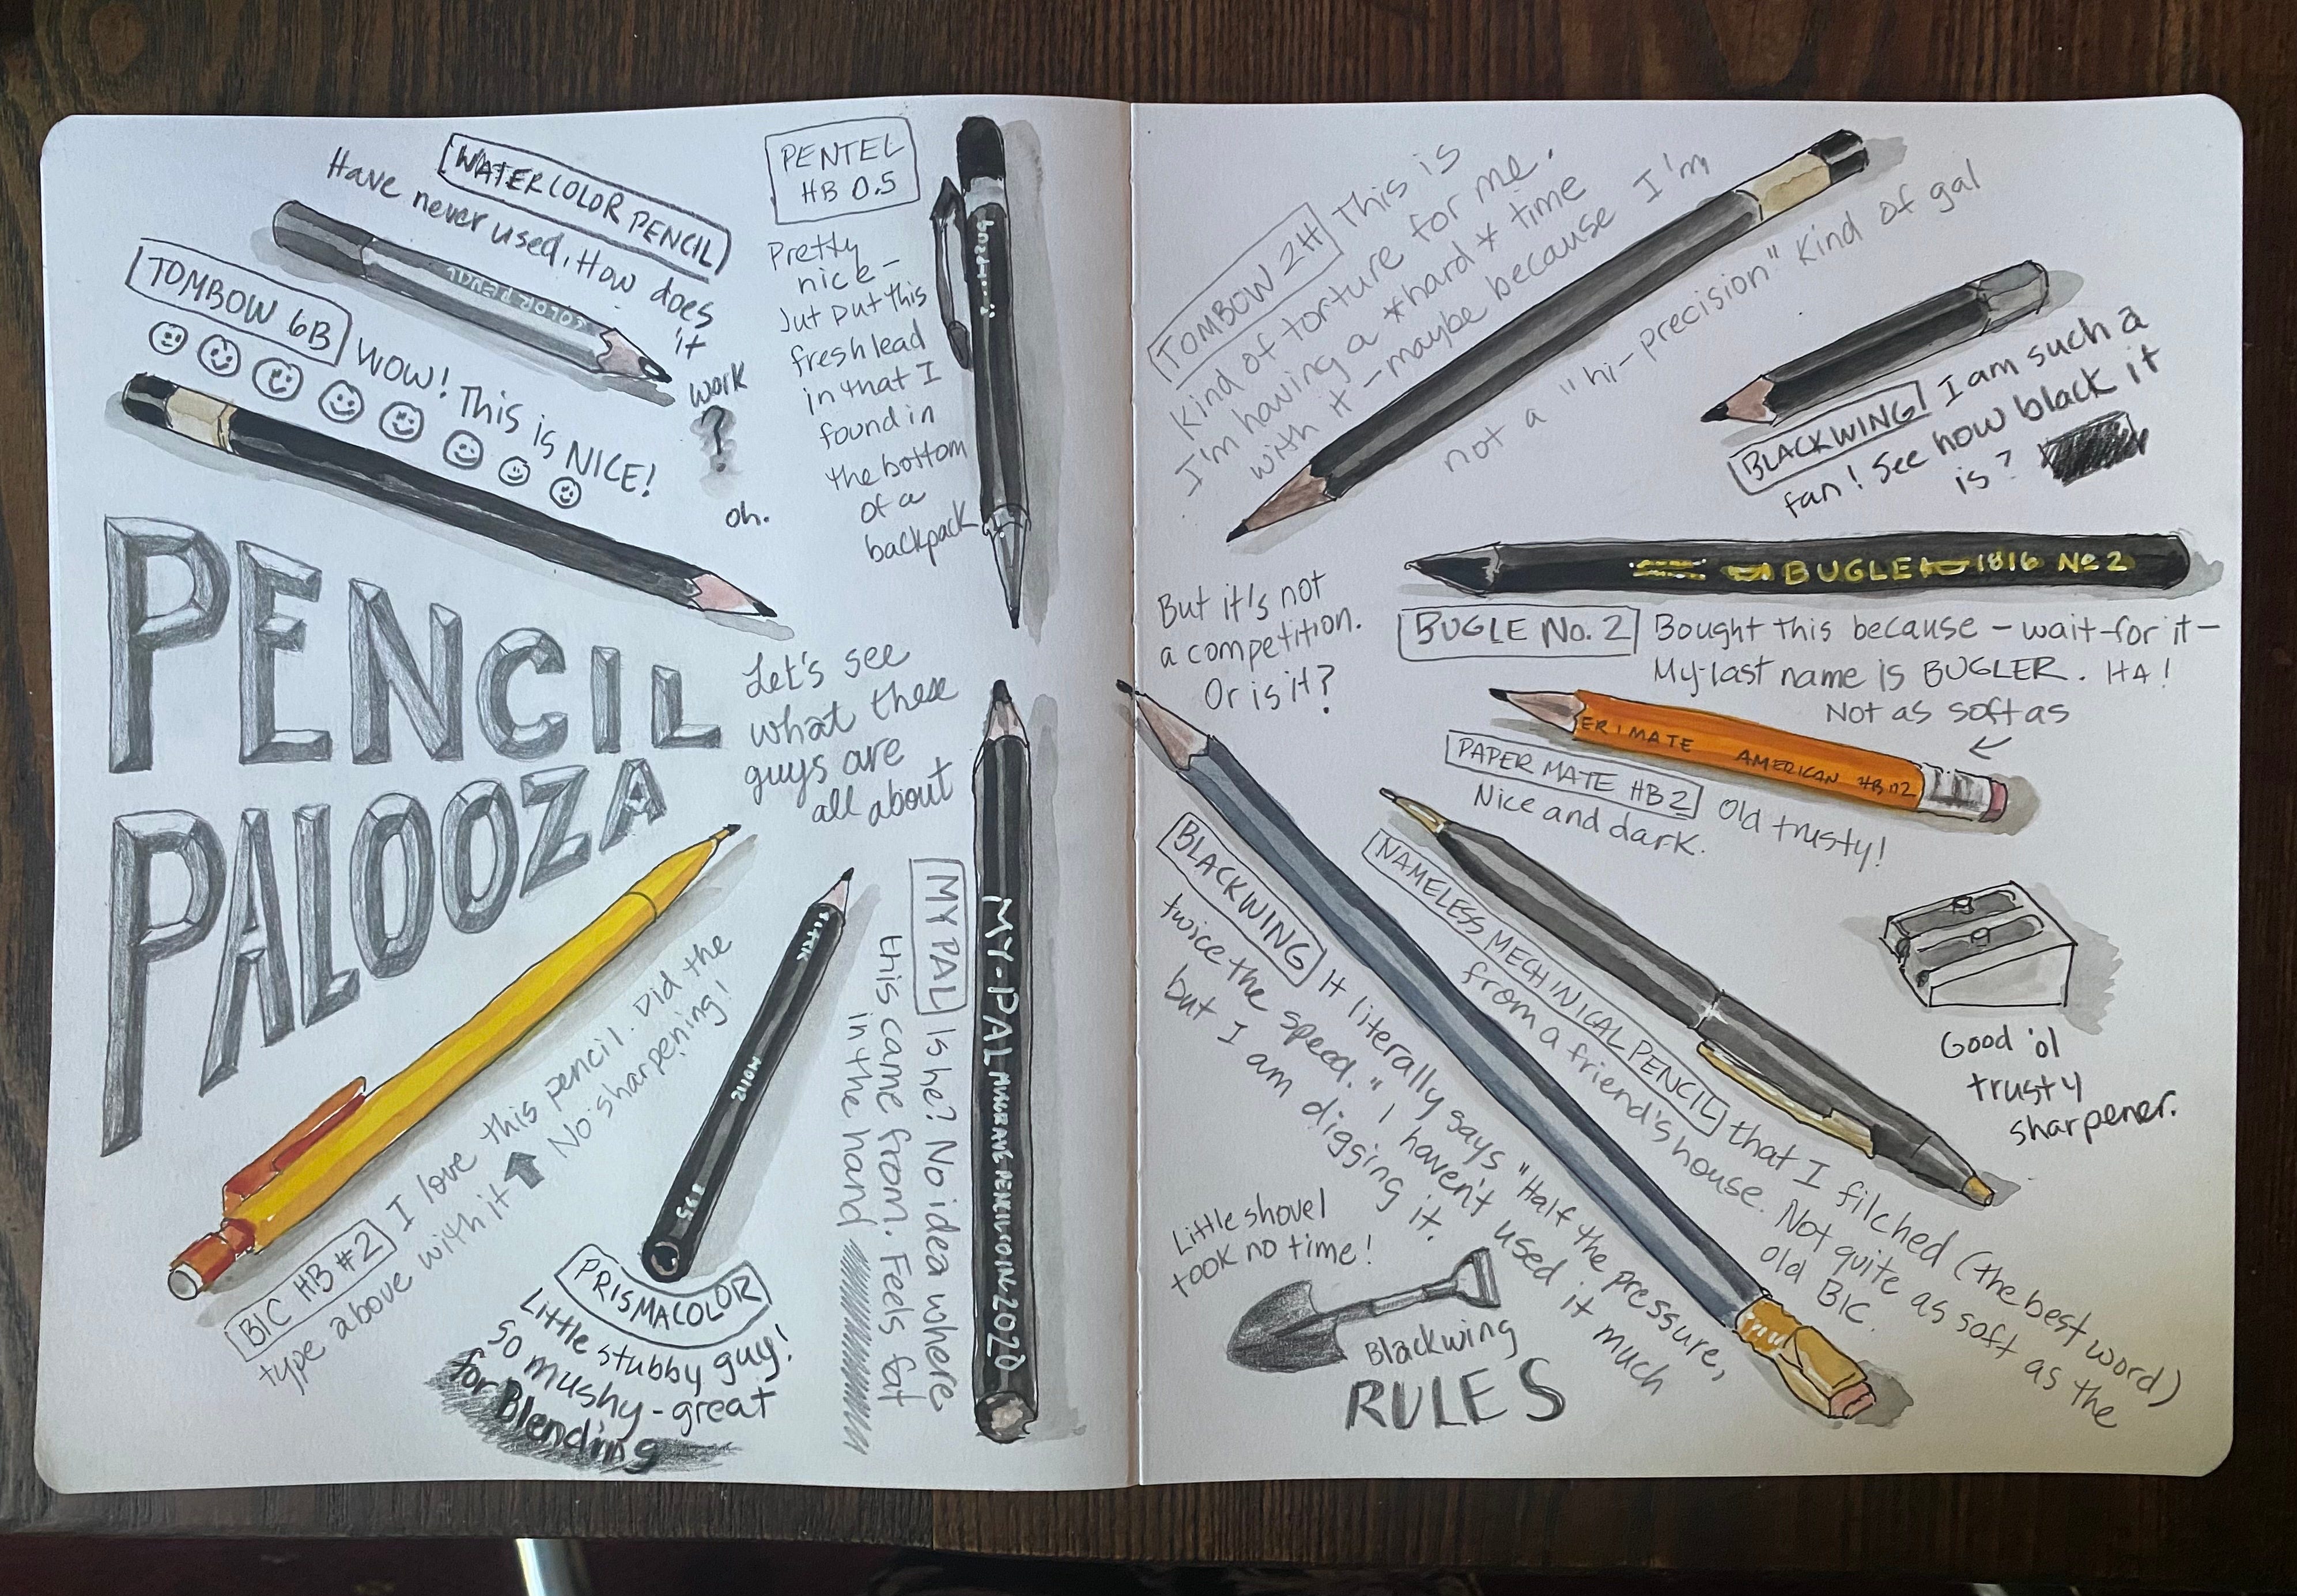 WATERCOLOR PENCIL
Have never used. How does
it
work
?
oh.
COLOR PENCIL
TOMBOW 6B
WOW! This is NICE!
PENTEL
HB 0.5
Pretty
nice -
Jut put this
fresh lead
in that I
found in
the bottom
of a
backpack
PENCIL
PALOOZA
Let's see
what these
guys are
all about
BIC HB #2 I love this pencil. Did the
type above with it No sharpening!
PRISMACOLOR
Little stubby guy!
so mushy - great
for Blending
935
MY PAL Is he? No idea where
this came from. Feels fat
in the hand
MY-PAL MUSGRAVE PENCIL CO INC 2020
TOMBOW 2H This is
kind of torture for me.
I'm having a *hard* time
with it - maybe because I'm
not a "hi-precision" kind of gal
BLACKWING I am such a
fan! See how black it
is?
BUGLE 1816 No 2
BUGLE No. 2 Bought this because - wait-for it -
My last name is BUGLER. HA!
Not as soft as
But it's not
a competition.
Or is it?
ER:MATE AMERICAN HB
PAPER MATE HB 2 Old trusty!
Nice and dark.
NAMELESS MECHINICAL PENCIL that I filched (the best word)
from a friend's house. Not quite as soft as the
old BIC.
Good 'ol
trusty
sharpener.
BLACKWING It literally says "Half the pressure,
twice the speed." I haven't used it much
but I am digging it.
Little shovel
took no time!
Blackwing
RULES